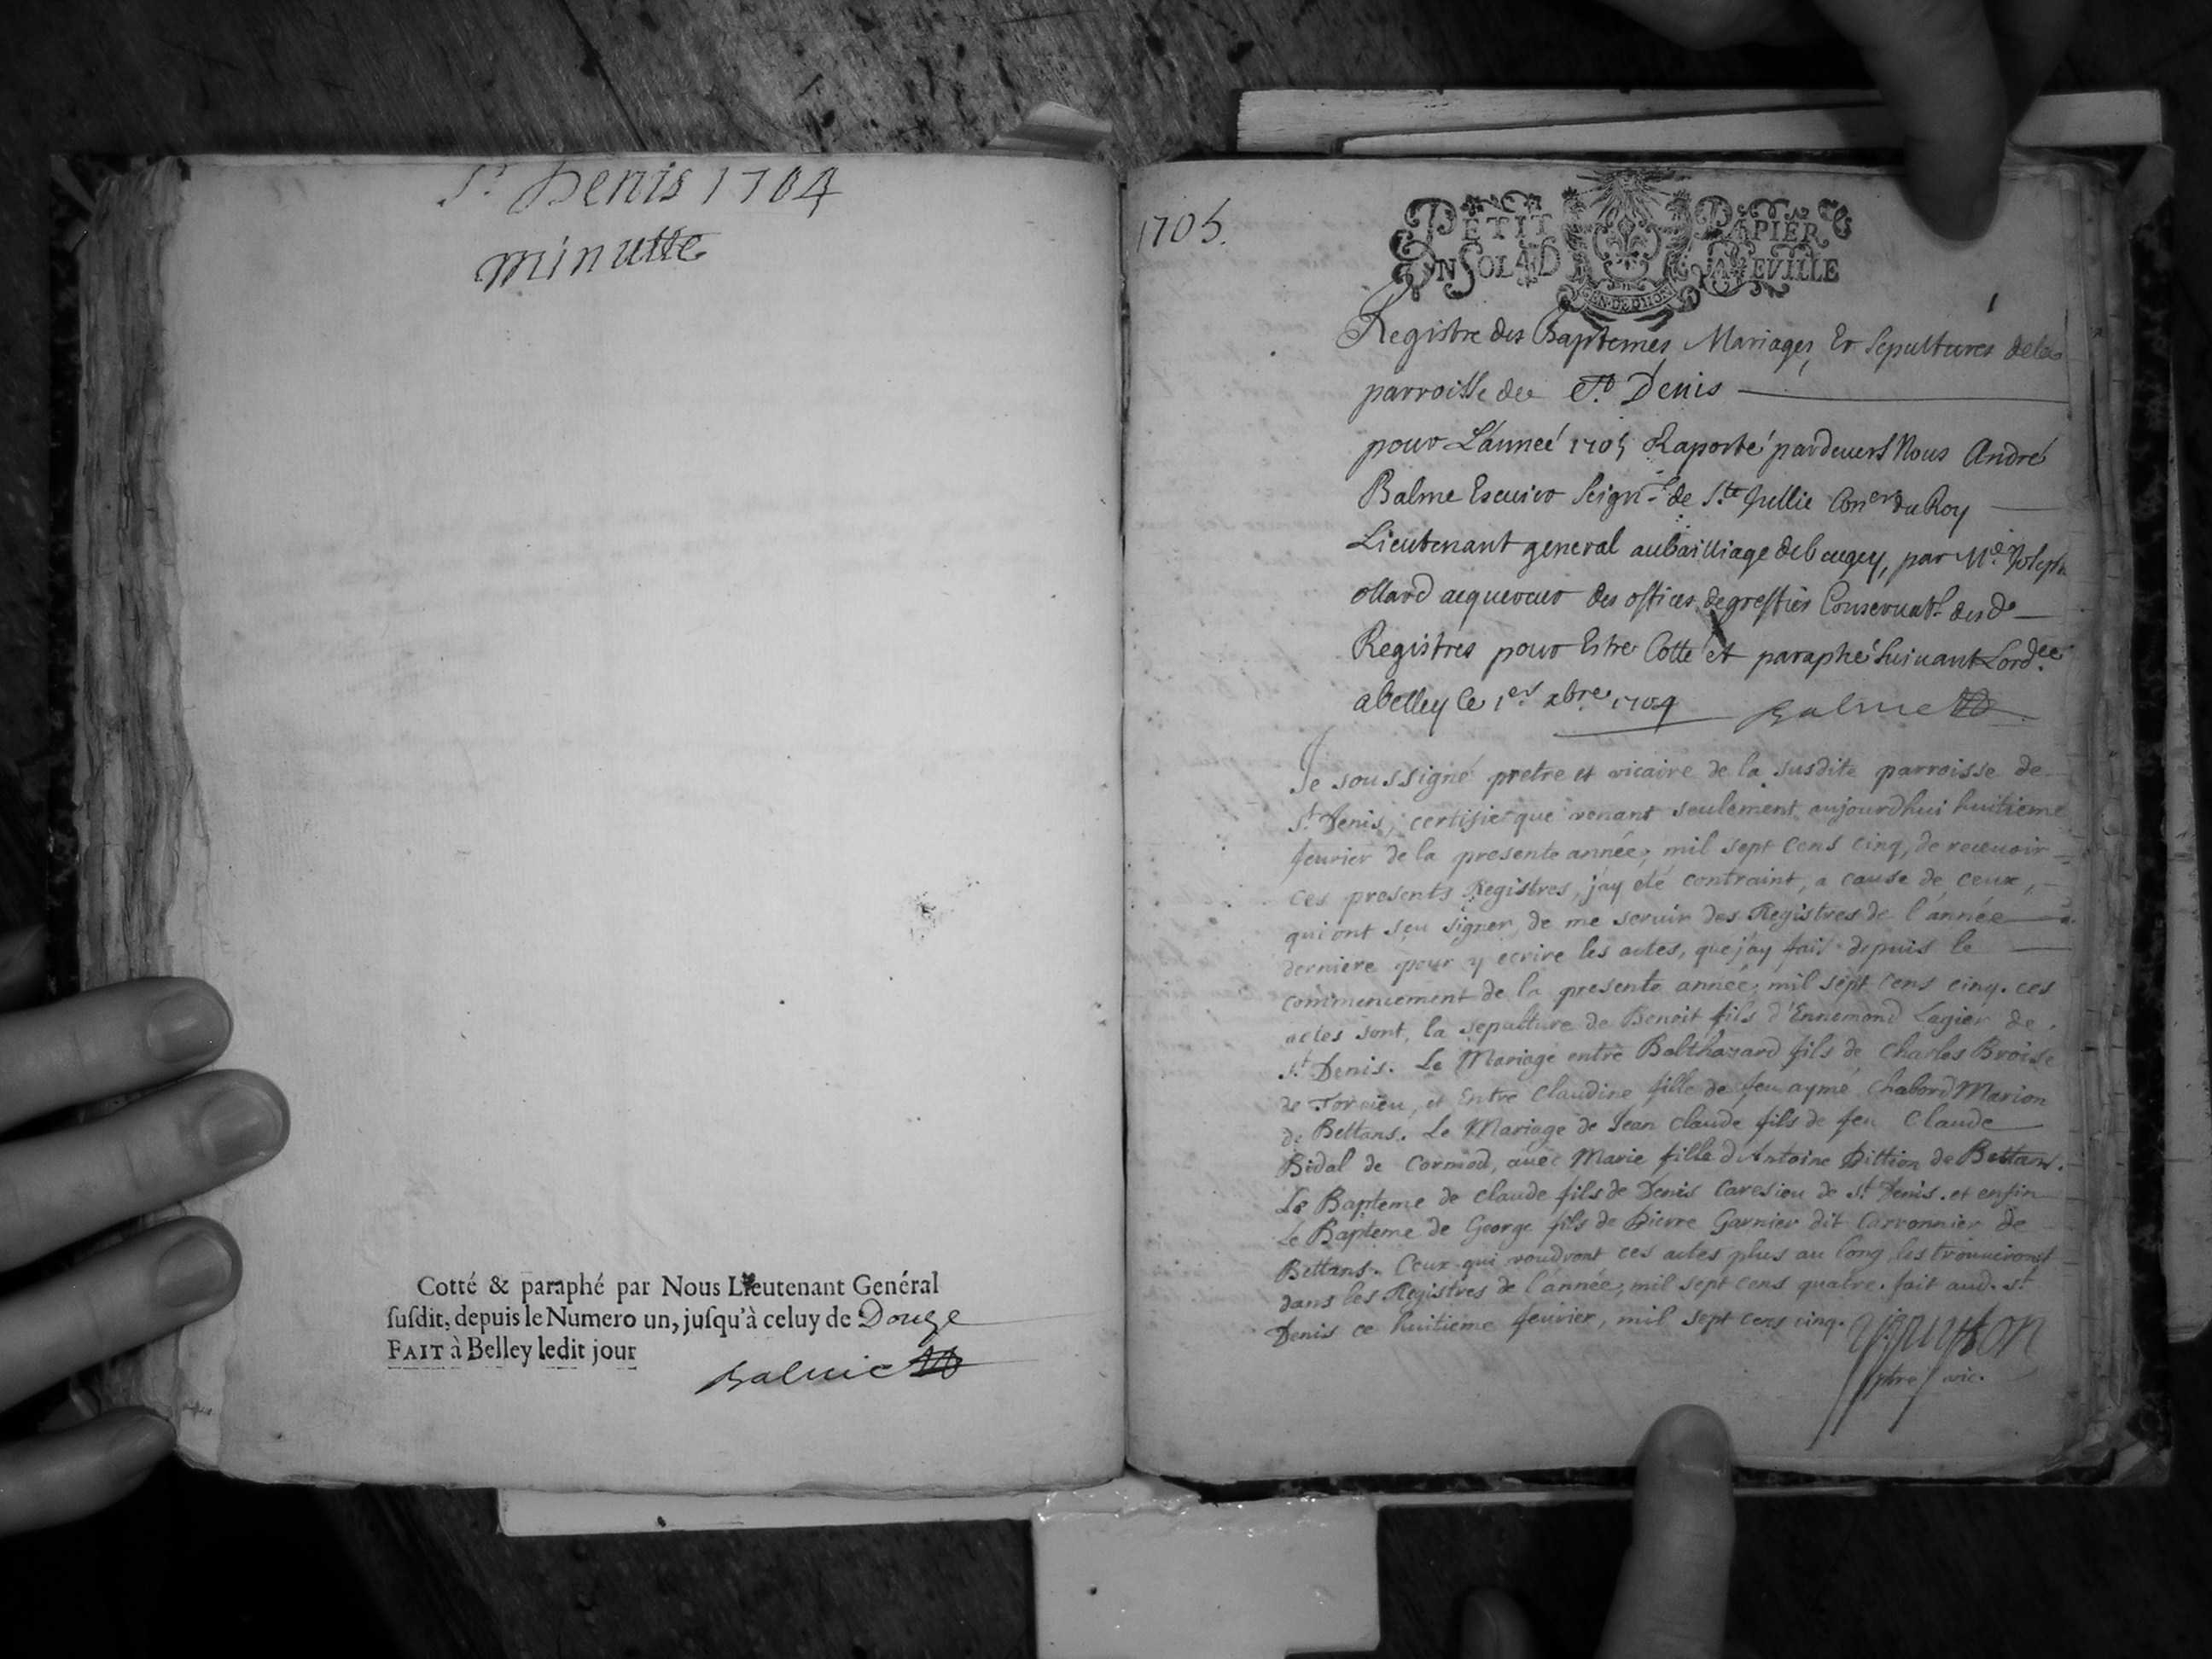 St Denis 1704
minutte
Cotté & paraphé par Nous Lieutenant Genéral
susdit, depuis le Numero un, jusqu'à celuy de Douze
FAIT à Belley ledit jour
Balme
1705.
PETIT PAPIER
UN SOL 4 D LA FEVILLE
GEN. DE DIJON
1
Registre des Baptemes, Mariages, Et Sepultures de la
parroisse de St. Denis
pour L'anneé 1705 Raporté pardeuers Nous André
Balme Escuier Seignr. de Ste Jullie Coner du Roy
Lieutenant general au bailliage de beugey, par Me. Joseph
ollard acquereur des offices de greffier Conseruatr. desd.
Registres pour Estre Cotté et paraphé suiuant Lordce.
a belley le 1er. xbre. 1704 Balme
Je soussigné pretre et vicaire de la susdite parroisse de
St. Denis, certifie que venant seulement aujourdhui huitieme
feurier de la presente année, mil sept cens cinq, de receuoir
ces presents Registres, j'ay eté contraint, a cause de ceux,
qui ont sçu signer, de me seruir des Registres de l'année
derniere pour y ecrire les actes, que j'ay fait depuis le
commencement de la presente année, mil sept cens cinq. ces
actes sont, la sepulture de Benoit fils d'Ennemond Lagier de
St. Denis. Le Mariage entre Balthazard fils de Charles Broise
de Torcieu, et Entre Claudine fille de feu aymé Chabord Marion
de Bettans. Le Mariage de Jean Claude fils de feu Claude
Bidal de Cormod, auec Marie fille d'Antoine Dittion de Bettans.
Le Bapteme de Claude fils de Denis Caresieu de St. Denis. et enfin
Le Bapteme de George fils de Pierre Garnier dit Carronnier de
Bettans. Ceux qui voudront ces actes plus au long les trouueront
dans les Registres de l'année, mil sept cens quatre. fait aud. St.
Denis ce huitieme feurier, mil sept cens cinq.
ptre vic.